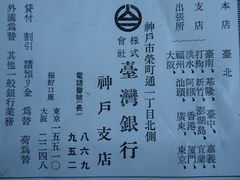 神戸市榮町通一丁目北側
株式會社 臺灣銀行
神戸支店
電話番號(長) 八六九 九五二
振貯口座 東京一五五一〇 大阪二二二四八
本店 臺北
支店
出張所
臺南、基隆、嘉義
打狗、新竹、澎湖島、宜蘭
淡水、阿猴、香港、廈門
福州、汕頭、廣東
大阪、東京
貸付 割引 諸預リ金 為替 荷為替
外國為替 其他一般銀行業務